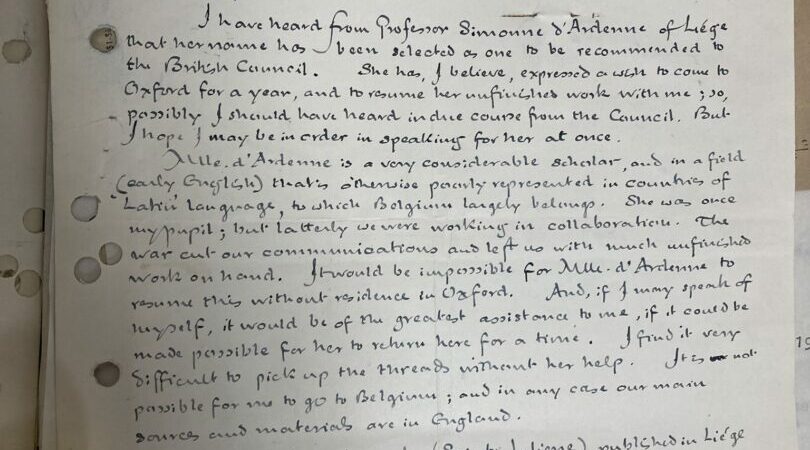 I have heard from Professor Simonne d'Ardenne of Liége
that her name has been selected as one to be recommended to
the British Council. She has, I believe, expressed a wish to come to
Oxford for a year, and to resume her unfinished work with me; so,
possibly I should have heard in due course from the Council. But
I hope I may be in order in speaking for her at once.
Mlle. d'Ardenne is a very considerable scholar, and in a field
(early English) that is otherwise poorly represented in countries of
'Latin' language, to which Belgium largely belongs. She was once
my pupil; but latterly we were working in collaboration. The
war cut our communications and left us with much unfinished
work on hand. It would be impossible for Mlle. d'Ardenne to
resume this without residence in Oxford. And, if I may speak of
myself, it would be of the greatest assistance to me, if it could be
made possible for her to return here for a time. I find it very
difficult to pick up the threads without her help. It is not
possible for me to go to Belgium; and in any case our main
sources and materials are in England.
published in Liége